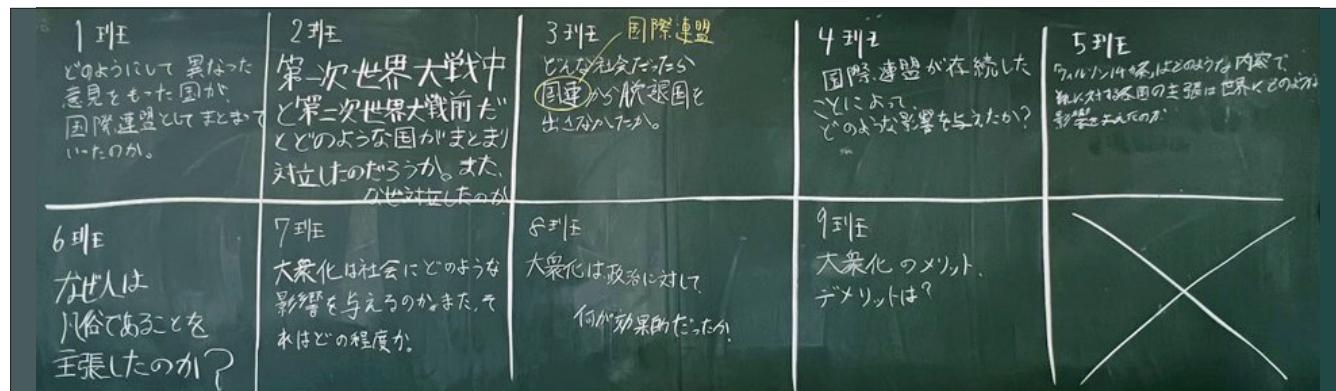 1班
どのようにして 異なった
意見をもった国が、
国際連盟としてまとまって
いったのか。
2班
第一次世界大戦中
と第二次世界大戦前だ
とどのような国がまとまり
対立したのだろうか。また、
なぜ対立したのか
3班
国際連盟
どんな社会だったら
国連から脱退国を
出さなかったか。
4班
国際連盟が存続した
ことによって、
どのような影響を与えたか?
5班
「ウィルソン14か条」はどのような内容で
対する各国の主張は世界にどのような
影響を与えたのか
6班
なぜ人は
であることを
主張したのか?
7班
大衆化は社会にどのような
影響を与えるのか。また、そ
れはどの程度か。
8班
大衆化は政治に対して
何が効果的だったか
9班
大衆化のメリット、
デメリットは?